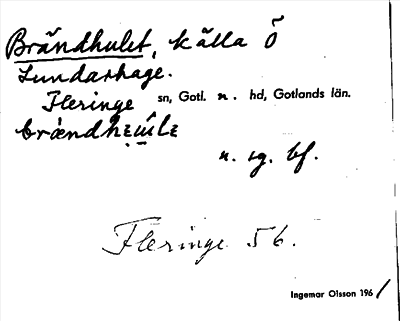 Brändhulet, källa Ö
Lundarhage.
Fleringe sn, Gotl. n. hd, Gotlands län.
n. sg. bf.
Fleringe 56.
Ingemar Olsson 1961